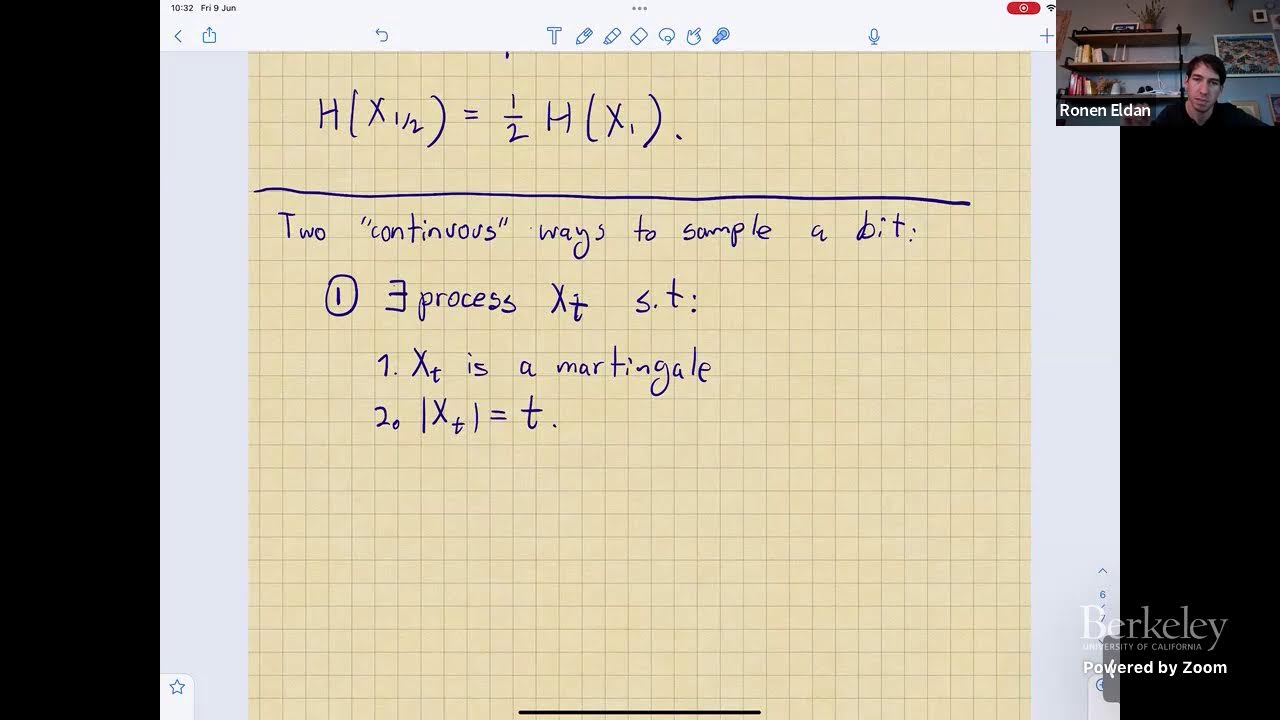 10:32 Fri 9 Jun
Ronen Eldan
H(X_{1/2}) = 1/2 H(X_1).
Two "continuous" ways to sample a bit:
① ∃ process X_t s.t:
1. X_t is a martingale
2. |X_t| = t.
6
7
Berkeley
UNIVERSITY OF CALIFORNIA
Powered by Zoom